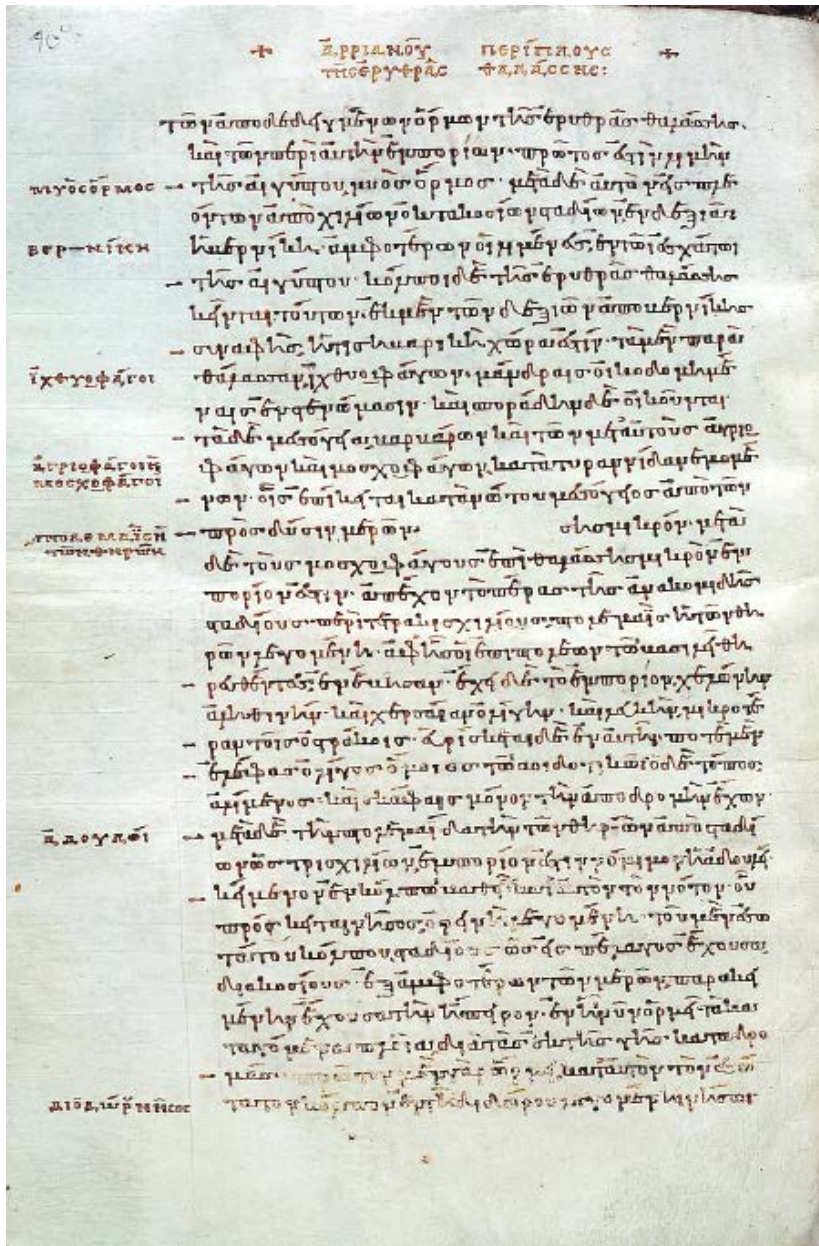 40v
+ ἀρριανοῦ περίπλους +
τῆς ἐρυθρᾶς θαλάσσης:
τῶν ἀποδεδειγμένων ὅρμων τῆς ἐρυθρᾶς θαλάσσης.
καὶ τῶν περὶ αὐτὴν ἐμπορίων· πρῶτος ἐστὶν λιμὴν
μυὸς ὅρμος
τῆς αἰγύπτου, μυὸς ὅρμος· μετὰ δὲ αὐτὸν εἰσπλε
όντων ἀπὸ χιλίων ὀκτακοσίων σταδίων, ἐν δεξιᾶι
βερνίκη
ἡ βερνίκη· ἀμφοτέρων οἱ λιμένες, ἐν τῶι ἐσχάτωι
τῆς αἰγύπτου· κόλποι δὲ τῆς ἐρυθρᾶς θαλάσσης
κεῖνται τούτων, ἐκ μὲν τῶν δεξιῶν ἀπὸ βερνίκης
συναφὴς, ἡ τισηβαρικὴ χώρα ἐστίν· τὰ μὲν παρὰ
ἰχθυοφάγοι
θάλασσαν, ἰχθυοφάγων, μάνδραις οἰκοδομημέ
ναις ἐν στενώμασιν· καὶ σποράδην δὲ οἰκοῦνται
τὰ δὲ μεσόγεια, βαρβάρων καὶ τῶν μετ' αὐτοὺς ἀγριο
ἀγριοφάγοι κ
μοσχοφάγοι
φάγων καὶ μοσχοφάγων, κατὰ τυραννίδα νεμομέ
νων· οἷς ἐπίκειται κατὰ νώτου μεσόγειος ἀπὸ τῶν
πτολεμαῒς ἡ
τῶν θηρῶν
πρὸς δύσιν μερῶν· σησμικρόν· μετὰ
δὲ τοὺς μοσχοφάγους ἐπὶ θαλάσσης μικρὸν ἐμ
πόριον ἐστὶν· ἀπέχον τὸ πέρας τῆς ἀνακομιδῆς
σταδίους περὶ τετρακισχιλίους, πτολεμαῒς ἡ τῶν θη
ρῶν λεγομένη· ἀφ' ἧς οἱ ἐπὶ πτολεμέων τῶν βασιλέων θη
ρευθέντες ἐνέβησαν· ἔχει δὲ τὸ ἐμπόριον, χελώνην
ἀληθινὴν καὶ χερσαίαν ὀλίγην· καὶ λευκὴν, μικροτέ
ραν τοῖς ὀστράκοις· εὑρίσκεται δὲ ἐν αὐτῆι ποτὲ μὲν
ἐλέφας ὀλίγος ὅμοιος τῶι ἀδουλιτικῶι· ὁ δὲ τόπος,
ἀλίμενος· καὶ σκάφαις μόνον τὴν ἀποδρομὴν ἔχων·
ἀδουλεί
μετὰ δὲ τὴν πτολεμαΐδα τὴν τῶν θηρῶν ἀπὸ σταδί
ων ὡς τρισχιλίων, ἐμπόριον ἐστὶν νόμιμον ἡ ἀδουλεὶ
κείμενον ἐν κόλπωι βαθεῖ κατ' αὐτὸν τὸν νότον· οὗ
πρόκειται νῆσος, ὀρεινὴ λεγομένη· τοῦ μὲν ἐσω
τάτου κόλπου, σταδίους ὡς εἰς πέλαγος ἔχουσα
διακοσίους· ἐξ ἀμφοτέρων τῶν μερῶν, παρακει
μένην ἔχουσα τὴν ἤπειρον· ἐν ἧι νῦν ὁρμεῖ τὰ κα
ταγόμενα πλοῖα, διὰ τὰς ἐκ τῆς γῆς καταδρο
μάς· πρῶτον μὲν γὰρ ὥρμει, κατ' αὐτὸν τὸν ἐσώ
διοδώρου νῆσος
τατον κόλπον ἐν τῆι διδώρου λεγομένηι νήσωι